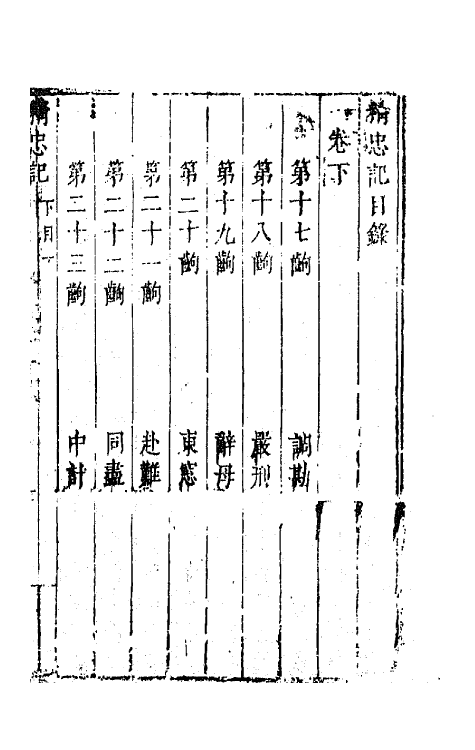 精忠記目錄
卷下
第十七齣 調勘
第十八齣 嚴刑
第十九齣 辭母
第二十齣 東窓
第二十一齣 赴難
第二十二齣 同盡
第二十三齣 中計
精忠記 下目 一